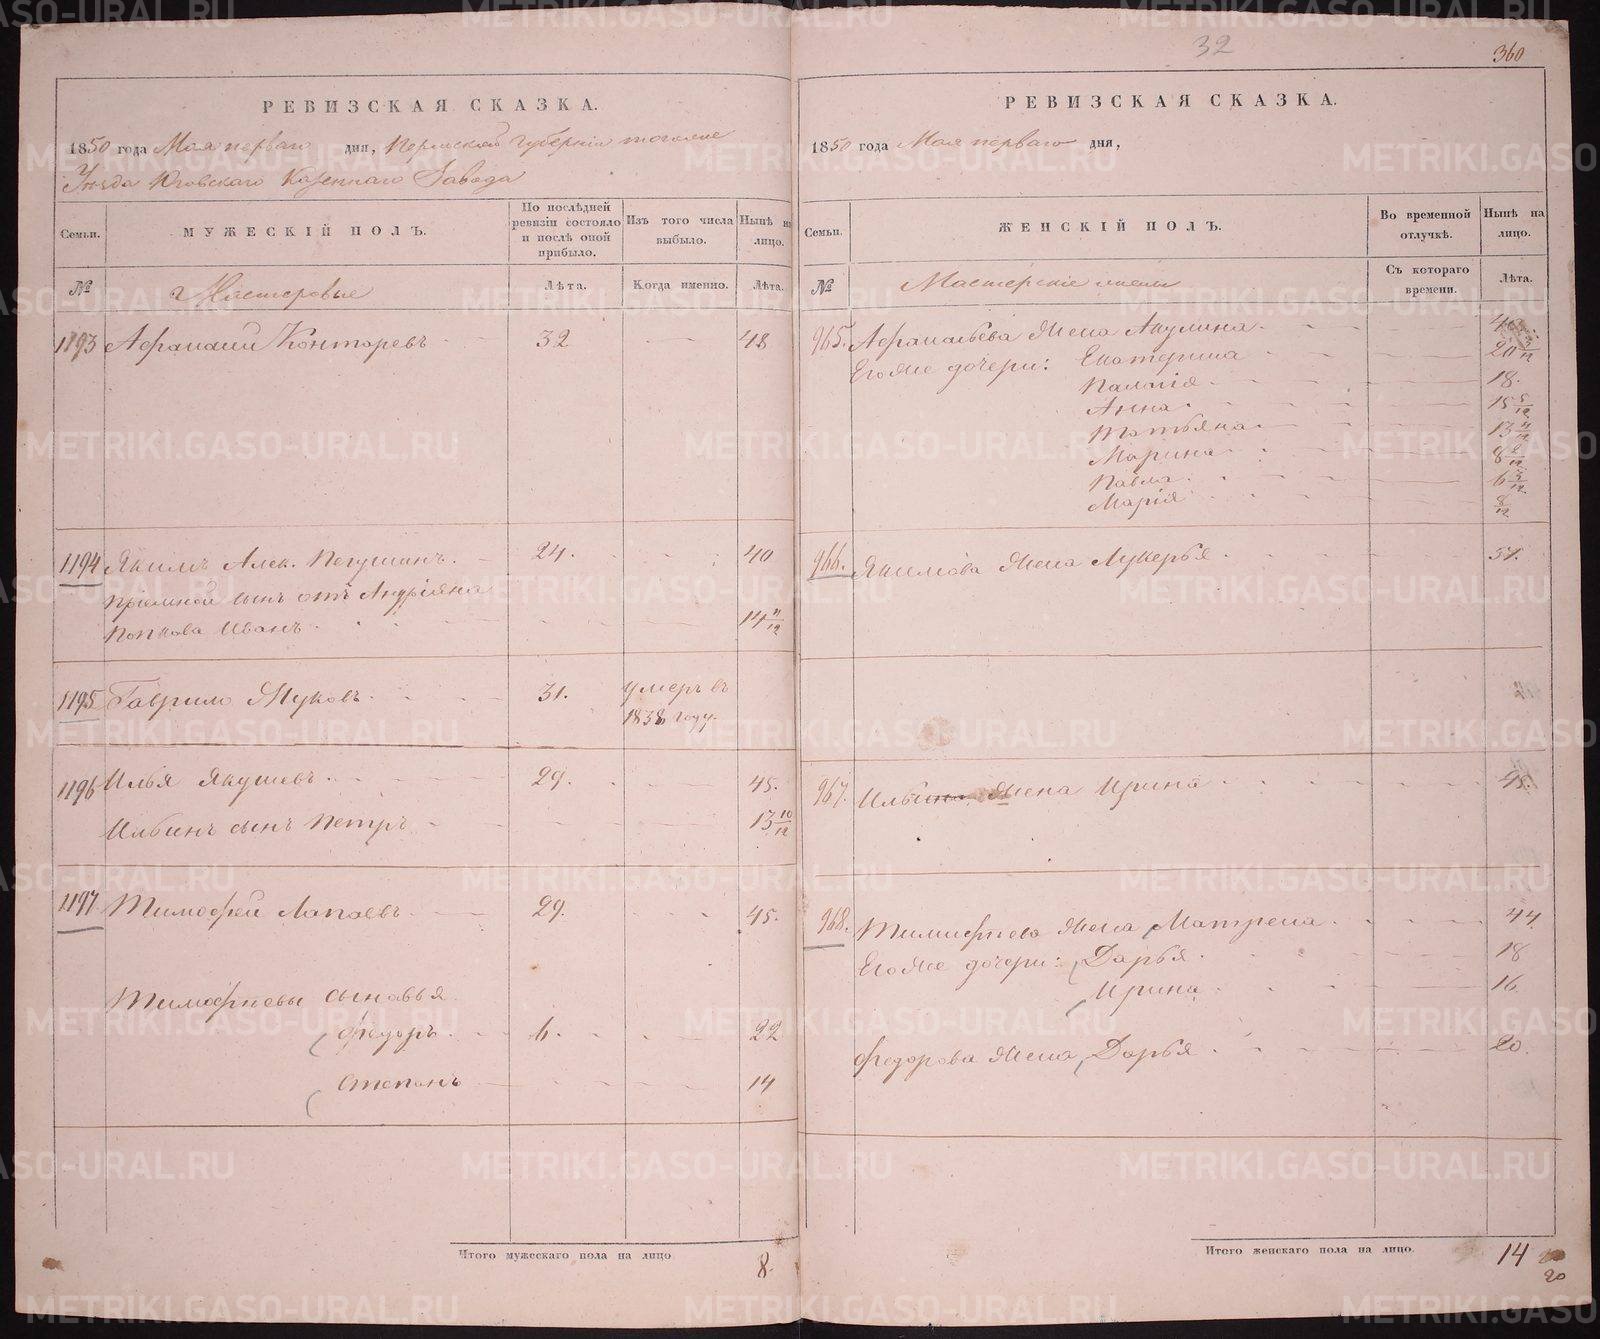 32
360
РЕВИЗСКАЯ СКАЗКА.
1850 года Мая перваго дня, Пермской Губерніи тогоже
Уѣзда Юговскаго Казеннаго Завода
Семьи.
МУЖЕСКІЙ ПОЛЪ.
По послѣдней ревизіи состояло и послѣ оной прибыло.
Изъ того числа выбыло.
Нынѣ на лицо.
№
Мастеровые
Лѣта.
Когда именно.
Лѣта.
1193 Афанасий Контаревъ 32 48
1194 Якимъ Алек. Петушинъ. 24. 40
Пріемной сынъ отъ Андріяна
Попкова Иванъ 14 11/12
1195 Гаврило Жуковъ 31. умеръ въ
1838 году.
1196 Илья Якушевъ 29. 45.
Ильинъ сынъ Петръ 13 10/12
1197 Тимофей Лапаевъ 29. 45.
Тимофѣевы сыновья
Федоръ 6. 22
Степанъ 14
Итого мужескаго пола на лицо 8.
РЕВИЗСКАЯ СКАЗКА.
1850 года Мая перваго дня,
Семьи.
ЖЕНСКІЙ ПОЛЪ.
Во временной отлучкѣ.
Нынѣ на лицо.
№
Мастерскіе
Съ котораго времени.
Лѣта.
965. Афанасьева жена Акулина
Егоже дочери: Екатерина 20 3/12
Палагія 18.
Анна 15 5/12
Татьяна 13 11/12
Марина 8
Павла 6
Марія 8/12
966. Якимова жена Лукерья 51.
967. Ильина жена Ирина 45.
968. Тимофѣева жена Матрена 44.
Егоже дочери: Дарья 18
Ирина 16
Федорова жена Дарья 20.
Итого женскаго пола на лицо. 14
20
METRIKI.GASO-URAL.RU